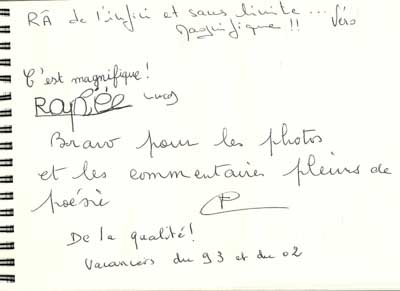 RÂ de l'infini et sans limite ...
magnifique !! Véro
C'est magnifique !
Raphaël Lucas
Bravo pour les photos
et les commentaires pleins de
poésie
De la qualité !
Vacanciers du 93 et du 02